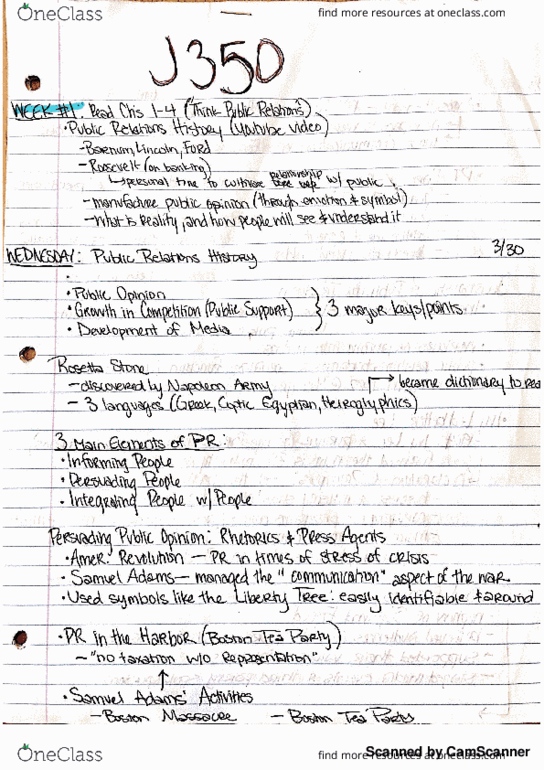 OneClass
find more resources at oneclass.com
J350
WEEK #1: Read Chs 1-4 (Think Public Relations)
• Public Relations History (Youtube video)
- Barnum, Lincoln, Ford
- Roosevelt (on banking)
relationship
↳ personal time to cultivate w/ public
- manufacture public opinion (through emotion & symbol)
- What is Reality, and how people will see & understand it
WEDNESDAY: Public Relations History 3/30
•
• Public Opinion
• Growth in Competition (Public Support) } 3 major keys/points
• Development of Media
Rosetta Stone
- discovered by Napoleon Army → became dictionary to rea
- 3 languages (Greek, Coptic Egyptian, Heiroglyphics)
3 Main Elements of PR:
• Informing People
• Persuading People
• Integrating People w/ People
Persuading Public Opinion: Rhetorics & Press Agents
• Amer. Revolution — PR in times of stress of crisis
• Samuel Adams — managed the "communication" aspect of the war
• Used symbols like the Liberty Tree: easily identifiable & around
• PR in the Harbor (Boston Tea Party)
- "no taxation w/o Representation"
↑
• Samuel Adams' Activities
- Boston Massacre - Boston Tea Party
OneClass
find more resources at oneclass.com
Scanned by CamScanner